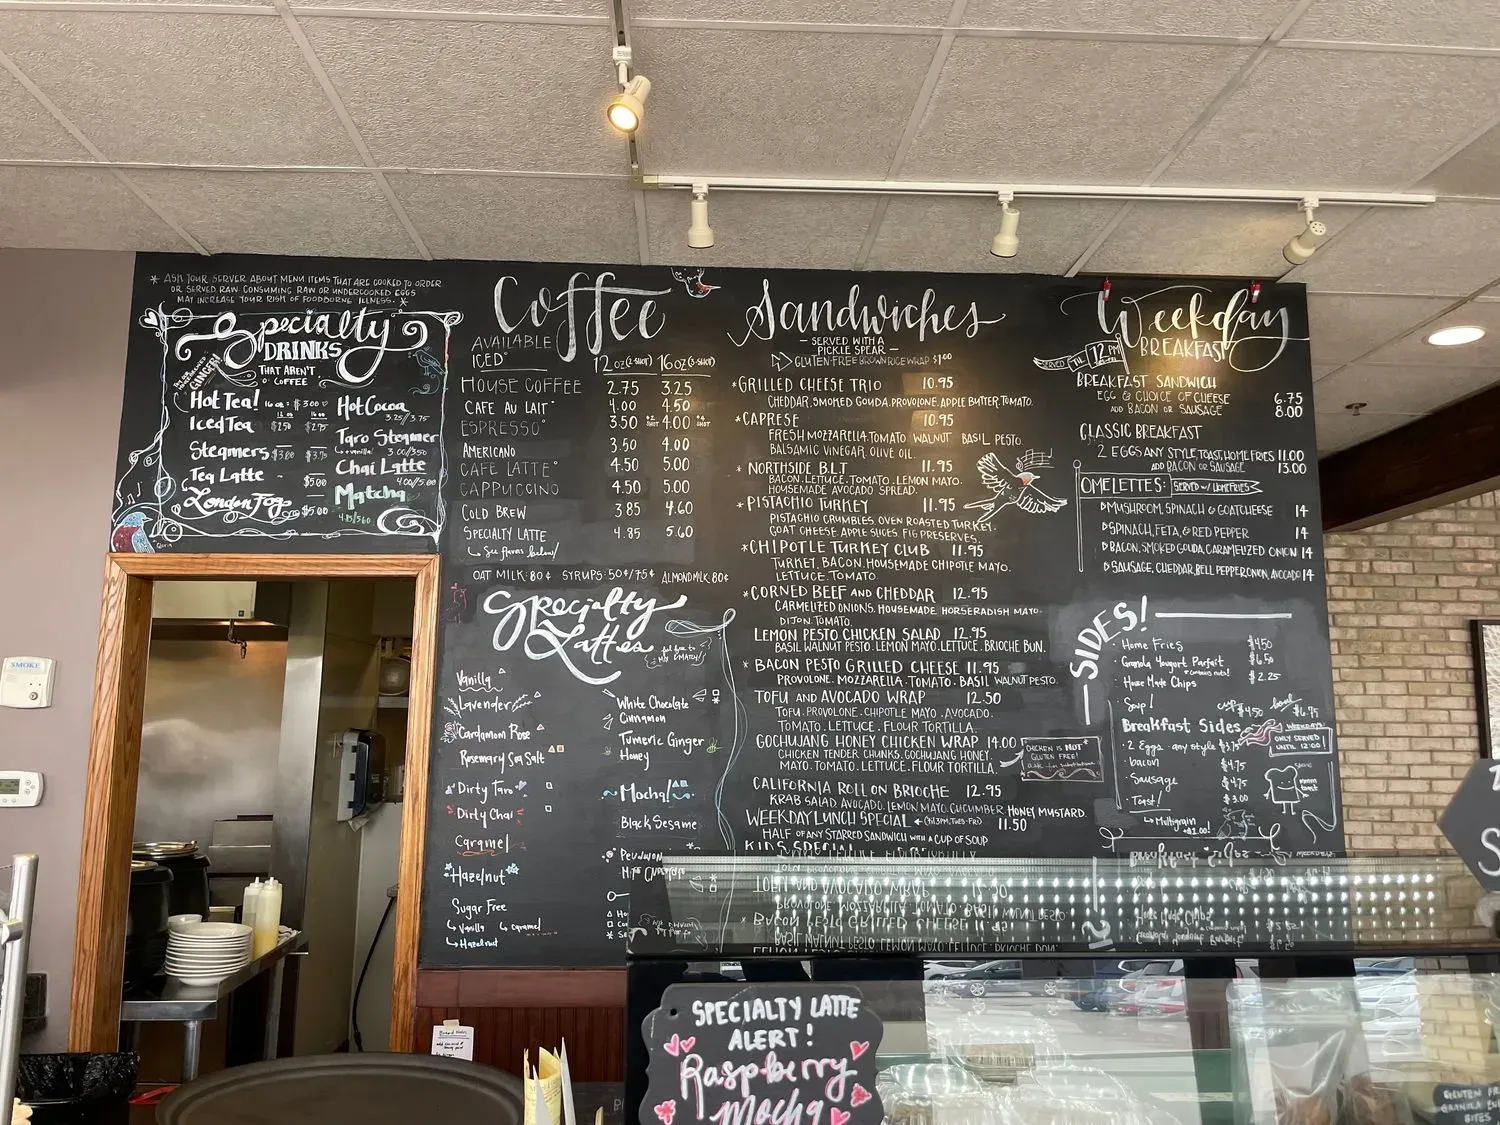 * ASK YOUR SERVER ABOUT MENU ITEMS THAT ARE COOKED TO ORDER
OR SERVED RAW. CONSUMING RAW OR UNDERCOOKED EGGS
MAY INCREASE YOUR RISK OF FOODBORNE ILLNESS. *
Specialty
DRINKS
THAT AREN'T
COFFEE
Hot Tea! 16 oz: $3.00
16 oz
Iced Tea $2.50 $2.75
Steamers $3.00 $3.75
Tea Latte $5.00
London Fog $5.00
Hot Cocoa
3.25/3.75
Taro Steamer
+vanilla! 3.00/3.50
Chai Latte
4.00/5.00
Matcha
4.85/5.60
Coffee
AVAILABLE
ICED°
12oz (2-SHOT) 16oz (3-SHOT)
HOUSE COFFEE 2.75 3.25
CAFE AU LAIT° 4.00 4.50
ESPRESSO° 3.50 4.00
AMERICANO 3.50 4.00
CAFE LATTE° 4.50 5.00
CAPPUCCINO 4.50 5.00
COLD BREW 3.85 4.60
SPECIALTY LATTE 4.85 5.60
↳ See flavors below!
OAT MILK: 80¢ SYRUPS: 50¢/75¢ ALMOND MILK: 80¢
Specialty
Lattes
feel free to
MIX & MATCH!
Vanilla
Lavender
Cardamom Rose
Rosemary Sea Salt
Dirty Taro
Dirty Chai
Caramel
Hazelnut
Sugar Free
↳ Vanilla ↳ Caramel
↳ Hazelnut
White Chocolate
Cinnamon
Tumeric Ginger
Honey
Mocha!
Black Sesame
Sandwiches
- SERVED WITH A
PICKLE SPEAR -
GLUTEN-FREE BROWN RICE WRAP $1.00
*GRILLED CHEESE TRIO 10.95
CHEDDAR, SMOKED GOUDA, PROVOLONE, APPLE BUTTER, TOMATO.
*CAPRESE 10.95
FRESH MOZZARELLA, TOMATO WALNUT BASIL PESTO.
BALSAMIC VINEGAR, OLIVE OIL.
*NORTHSIDE B.L.T 11.95
BACON. LETTUCE. TOMATO. LEMON MAYO.
HOUSEMADE AVOCADO SPREAD.
*PISTACHIO TURKEY 11.95
PISTACHIO CRUMBLES OVEN ROASTED TURKEY.
GOAT CHEESE. APPLE SLICES. FIG PRESERVES.
*CHIPOTLE TURKEY CLUB 11.95
TURKEY, BACON, HOUSEMADE CHIPOTLE MAYO.
LETTUCE. TOMATO.
*CORNED BEEF AND CHEDDAR 12.95
CARMELIZED ONIONS. HOUSEMADE HORSERADISH MAYO.
DIJON. TOMATO.
LEMON PESTO CHICKEN SALAD 12.95
BASIL WALNUT PESTO. LEMON MAYO. LETTUCE. BRIOCHE BUN.
* BACON PESTO GRILLED CHEESE 11.95
PROVOLONE. MOZZARELLA. TOMATO. BASIL WALNUT PESTO.
TOFU AND AVOCADO WRAP 12.50
TOFU. PROVOLONE. CHIPOTLE MAYO. AVOCADO.
TOMATO. LETTUCE. FLOUR TORTILLA.
GOCHUJANG HONEY CHICKEN WRAP 14.00
CHICKEN TENDER CHUNKS. GOCHUJANG HONEY.
MAYO. TOMATO. LETTUCE. FLOUR TORTILLA.
CHICKEN IS NOT
GLUTEN FREE!
CALIFORNIA ROLL ON BRIOCHE 12.95
KRAB SALAD, AVOCADO, LEMON MAYO, CUCUMBER, HONEY MUSTARD.
WEEKDAY LUNCH SPECIAL ← (TIL 3PM, TUES-FRI) 11.50
HALF OF ANY STARRED SANDWICH WITH A CUP OF SOUP
KIDS SPECIAL
Weekday
BREAKFAST
SERVED 'TIL 12PM
BREAKFAST SANDWICH
EGG & CHOICE OF CHEESE 6.75
ADD BACON OR SAUSAGE 8.00
CLASSIC BREAKFAST
2 EGGS ANY STYLE, TOAST, HOME FRIES 11.00
ADD BACON OR SAUSAGE 13.00
OMELETTES: SERVED W/ HOMEFRIES
MUSHROOM, SPINACH & GOAT CHEESE 14
SPINACH, FETA, & RED PEPPER 14
BACON, SMOKED GOUDA, CARAMELIZED ONION 14
SAUSAGE, CHEDDAR, BELL PEPPER, ONION, AVOCADO 14
SIDES!
Home Fries $4.50
Granola Yougort Parfait $6.50
*contains nuts!
House Made Chips $2.25
Soup! cup $4.50 bowl $6.75
Breakfast Sides
WEEKDAYS
ONLY SERVED
UNTIL 12:00!
2 Eggs any style $3.75
bacon $4.75
Sausage $4.75
Toast! $3.00
↳ Multigrain
+$1.00!
SMOKE
SPECIALTY LATTE
ALERT!
Raspberry
Mocha